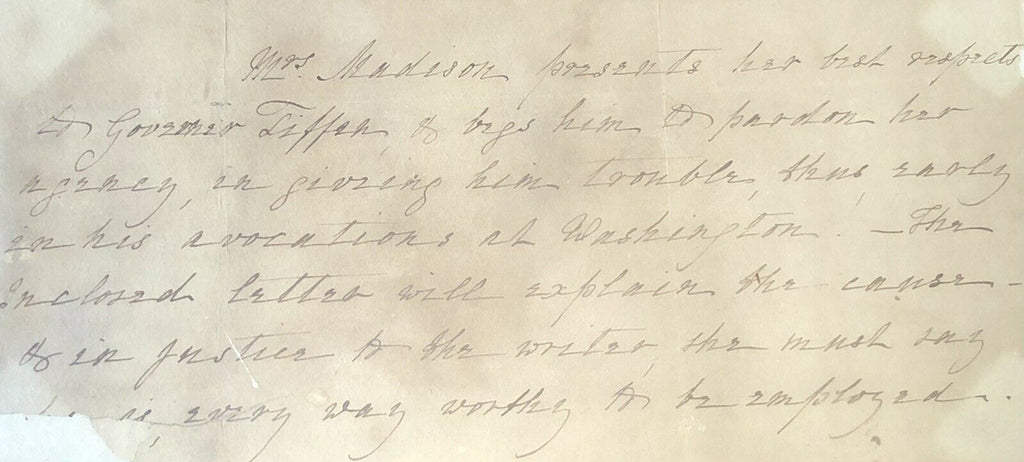 Mrs. Madison presents her best respects
to Govorner Tiffen, & begs him to pardon her
agency, in giveing him trouble, thus, early
in his avocations at Washington. — The
Inclosed letter will explain the cause -
& in justice to the writer, she must say
is, every way worthy to be employed -.